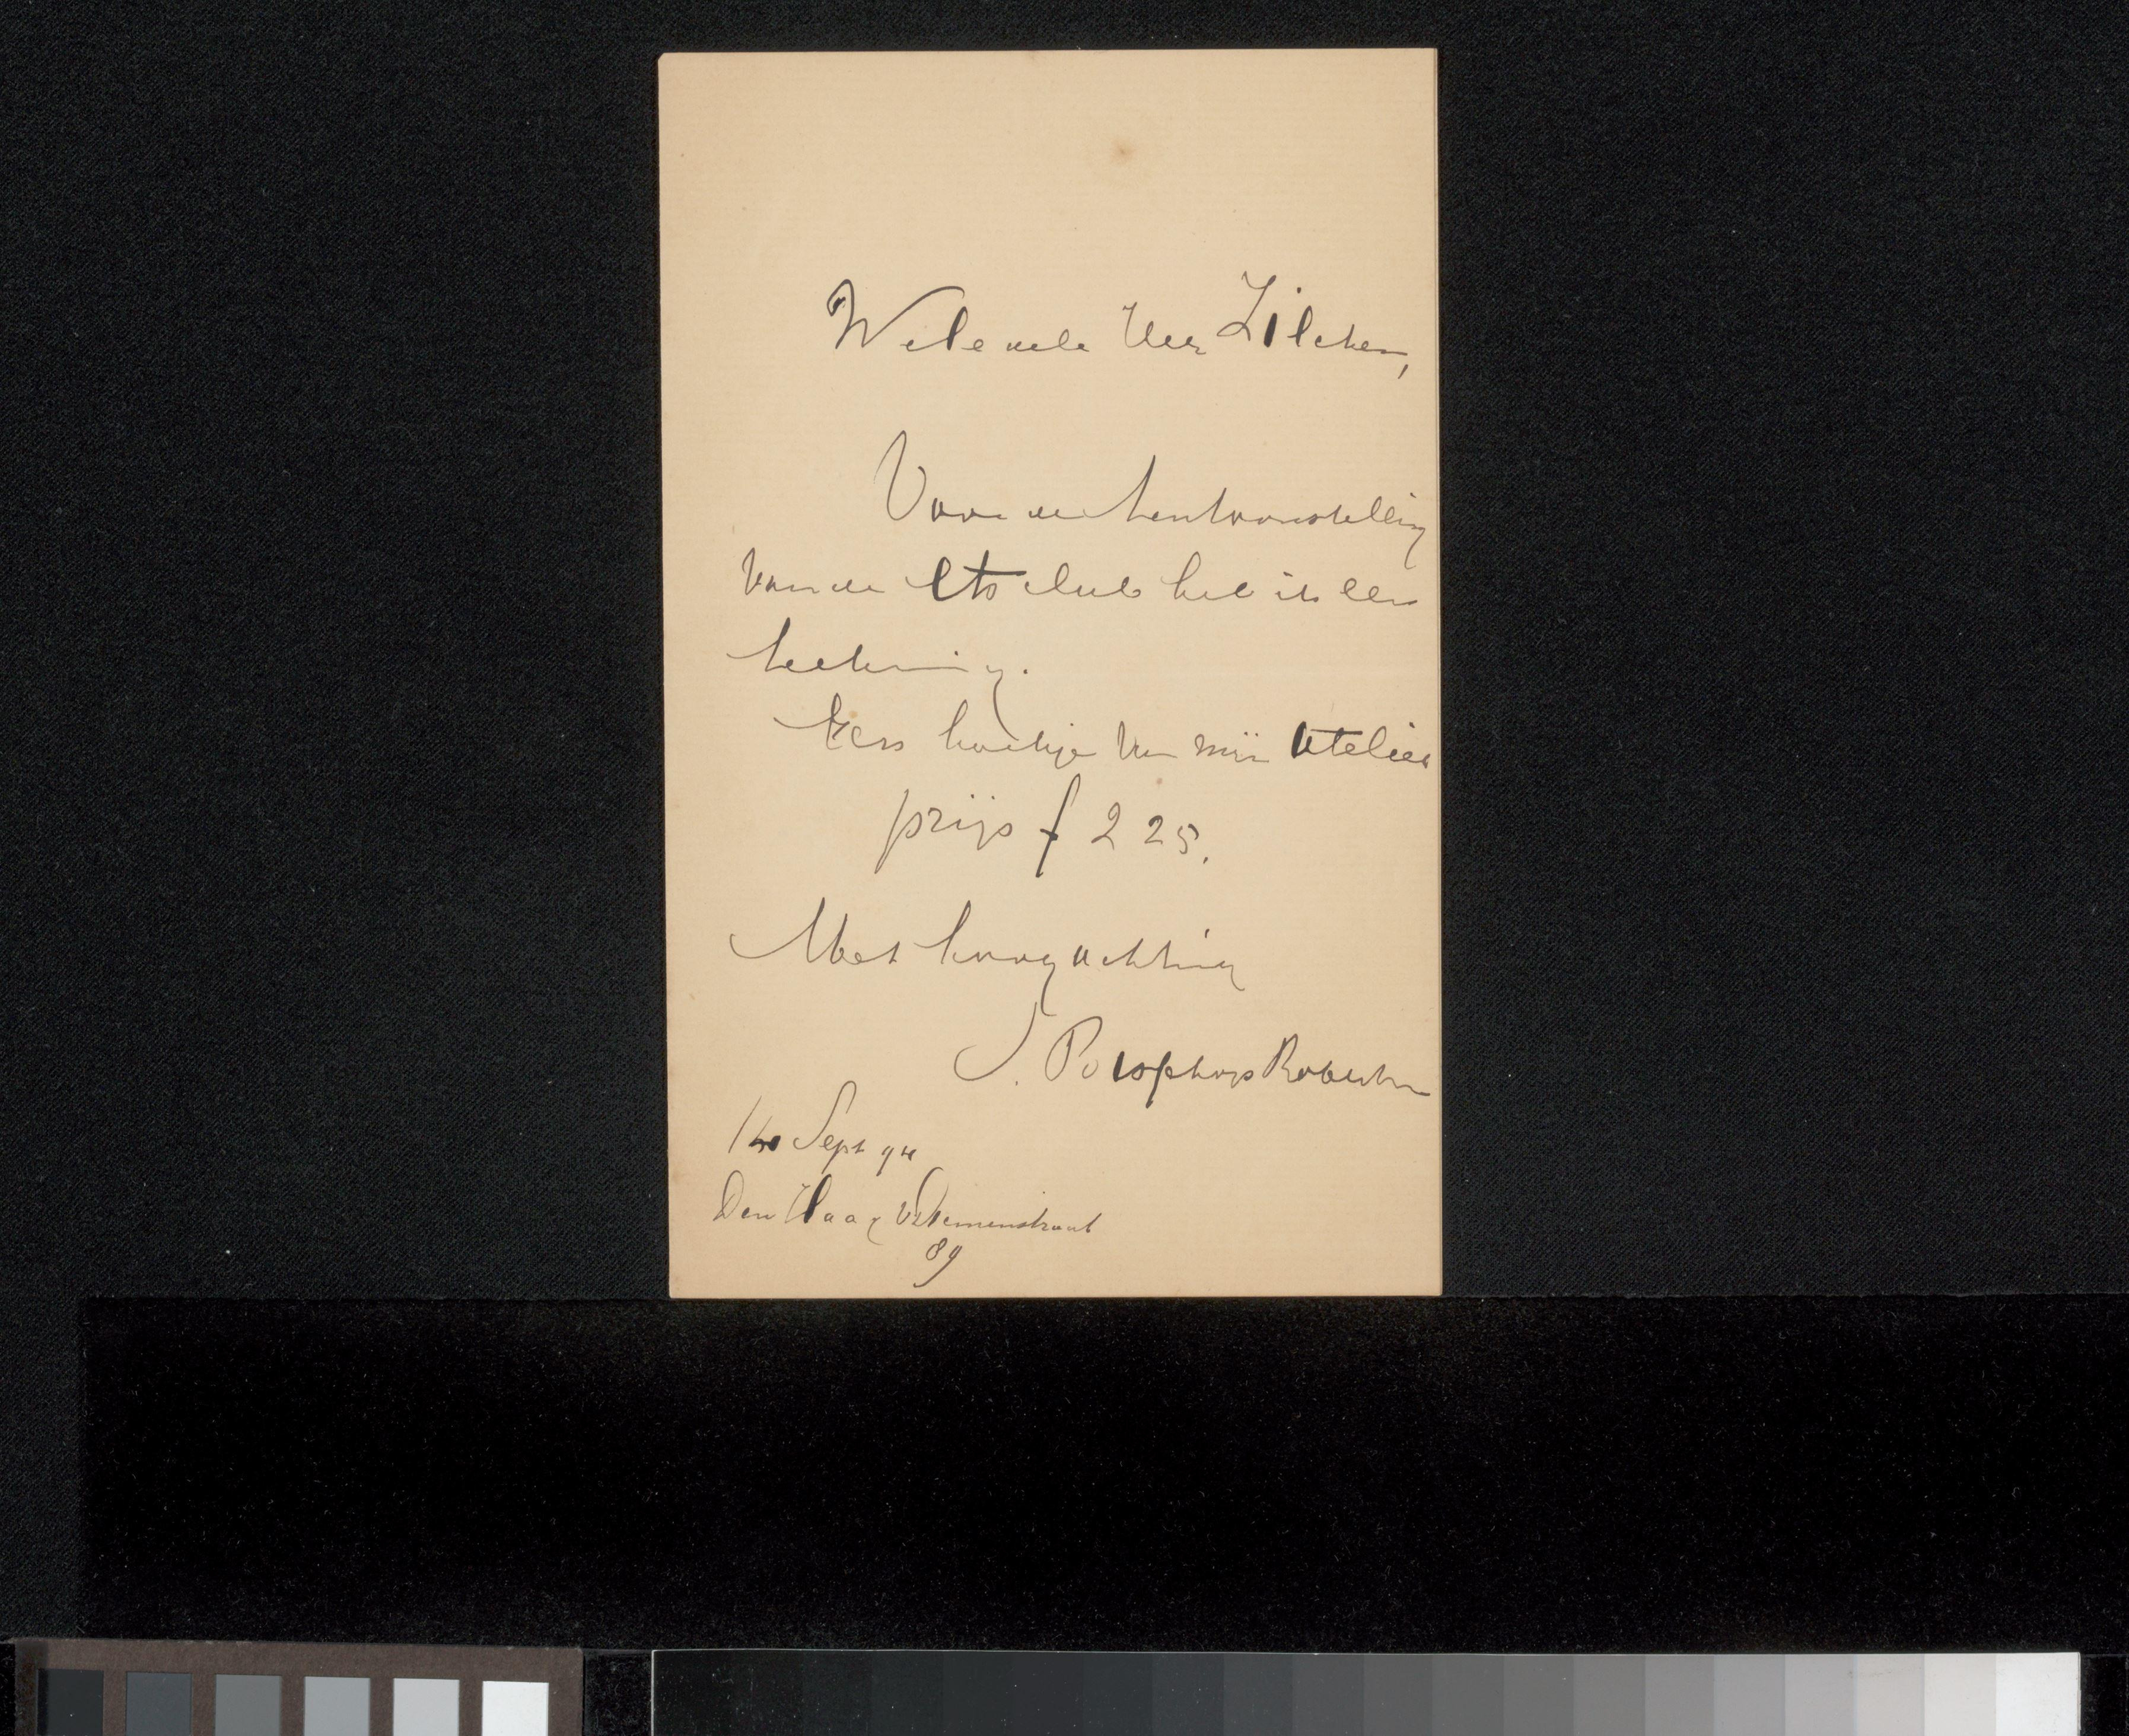 Weledele Heer Zilcken,
Voor de tentoonstelling
van de Ets club heb ik een
teekening.
Een hoekje van mijn atelier
prijs f 225.
Met hoogachting
S. Bisschop Robertson
14 Sept 94
Den Haag V Diemenstraat
89